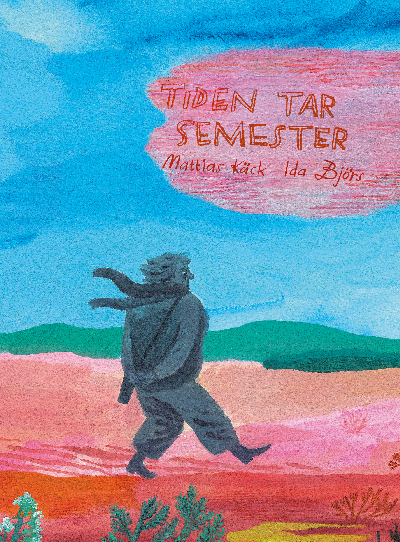 TIDEN TAR
SEMESTER
Mattias Käck Ida Björs